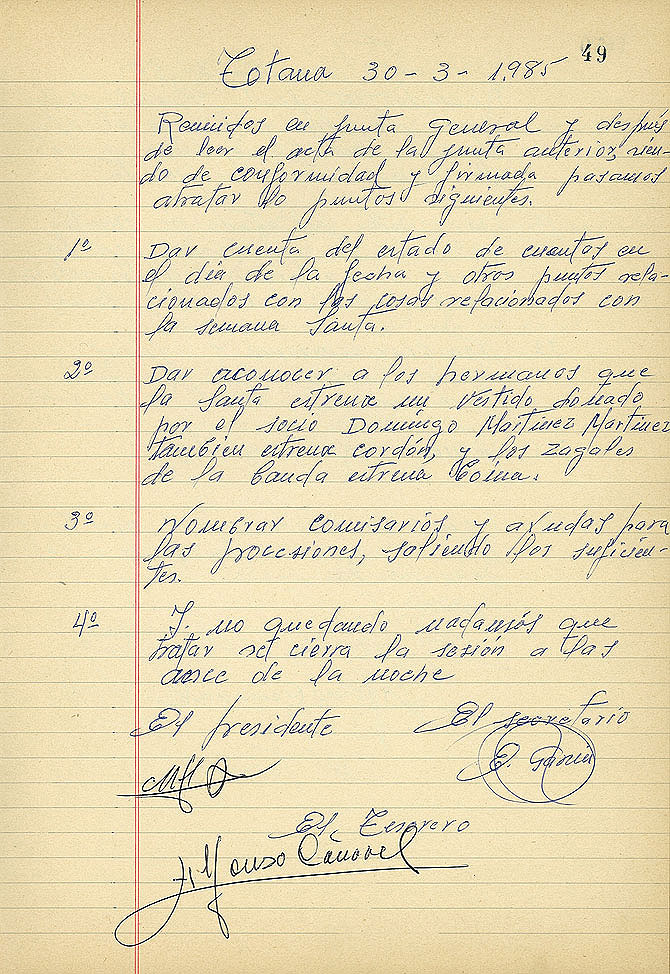 49
Totana 30-3-1.985
Reunidos en junta General y después
de leer el acta de la junta anterior, sien-
do de conformidad y firmada pasamos
atratar lo puntos siguientes.
1º Dar cuenta del estado de cuentos en
el dia de la fecha y otros puntos rela-
cionados con las cosas relacionados con
la semana Santa.
2º Dar aconocer a los hermanos que
la Santa estrena un vestido donado
por el socio Domingo Martinez Martinez
tambien estrena cordón, y los zagales
de la banda estrena
3º Nombrar comisarios y ayudas para
las procesiones, saliendo los suficien-
tes.
4º Y no quedando nadamás que
tratar se cierra la sesión a las
once de la noche
El presidente El secretario
E. García
El Tesorero
Alfonso Cánovas